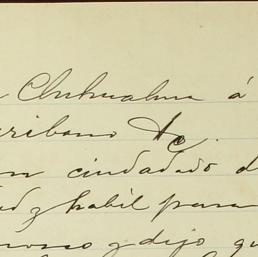 Chihuahua á
cribano &c.
ciudadado d
y habil para
y dijo qu